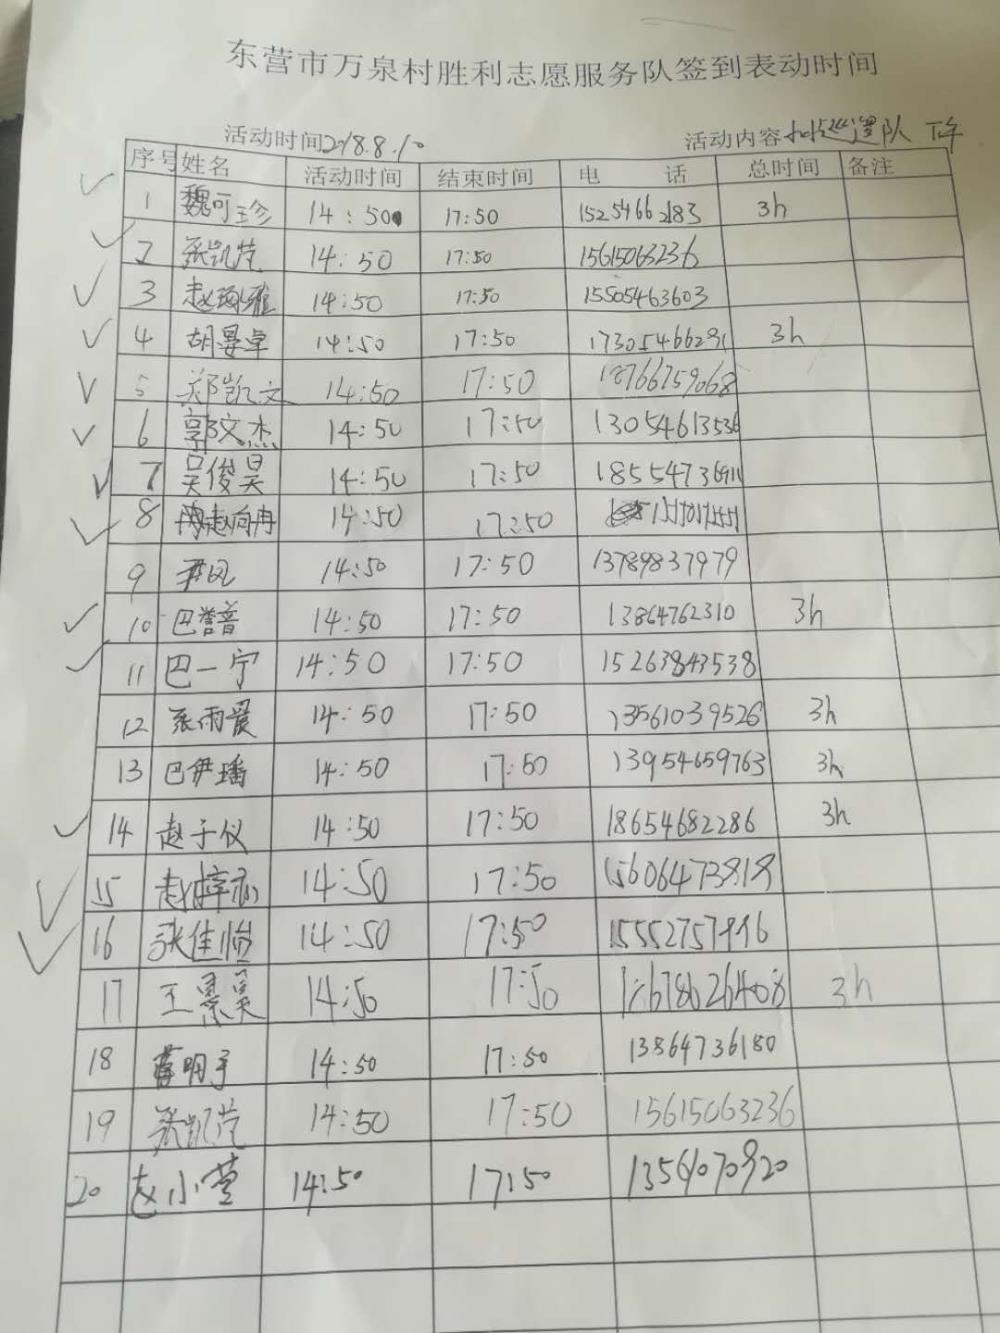 东营市万泉村胜利志愿服务队签到表动时间
活动时间2018.8.10 活动内容 巡逻队 下午
序号 姓名 活动时间 结束时间 电话 总时间 备注
1 魏可珍 14:50 17:50 15254662183 3h
2 张凯莹 14:50 17:50 15615063236
3 赵雅 14:50 17:50 15505463603
4 胡晏卓 14:50 17:50 17305466291 3h
5 郑凯文 14:50 17:50 18766759068
6 郭文杰 14:50 17:50 13054613536
7 吴俊昊 14:50 17:50 18554736911
8 赵向冉 14:50 17:50
9 14:50 17:50 13789837979
10 巴誉普 14:50 17:50 13864762310 3h
11 巴一宁 14:50 17:50 15263843538
12 张雨晨 14:50 17:50 13561039526 3h
13 巴伊璠 14:50 17:50 13954659763 3h
14 赵子仪 14:50 17:50 18654682286 3h
15 赵梓 14:50 17:50 15606473818
16 张佳怡 14:50 17:50
17 王景昊 14:50 17:50 18678026408 3h
18 明 14:50 17:50 13864736180
19 张凯莹 14:50 17:50 15615063236
20 赵小萱 14:50 17:50 13561070920